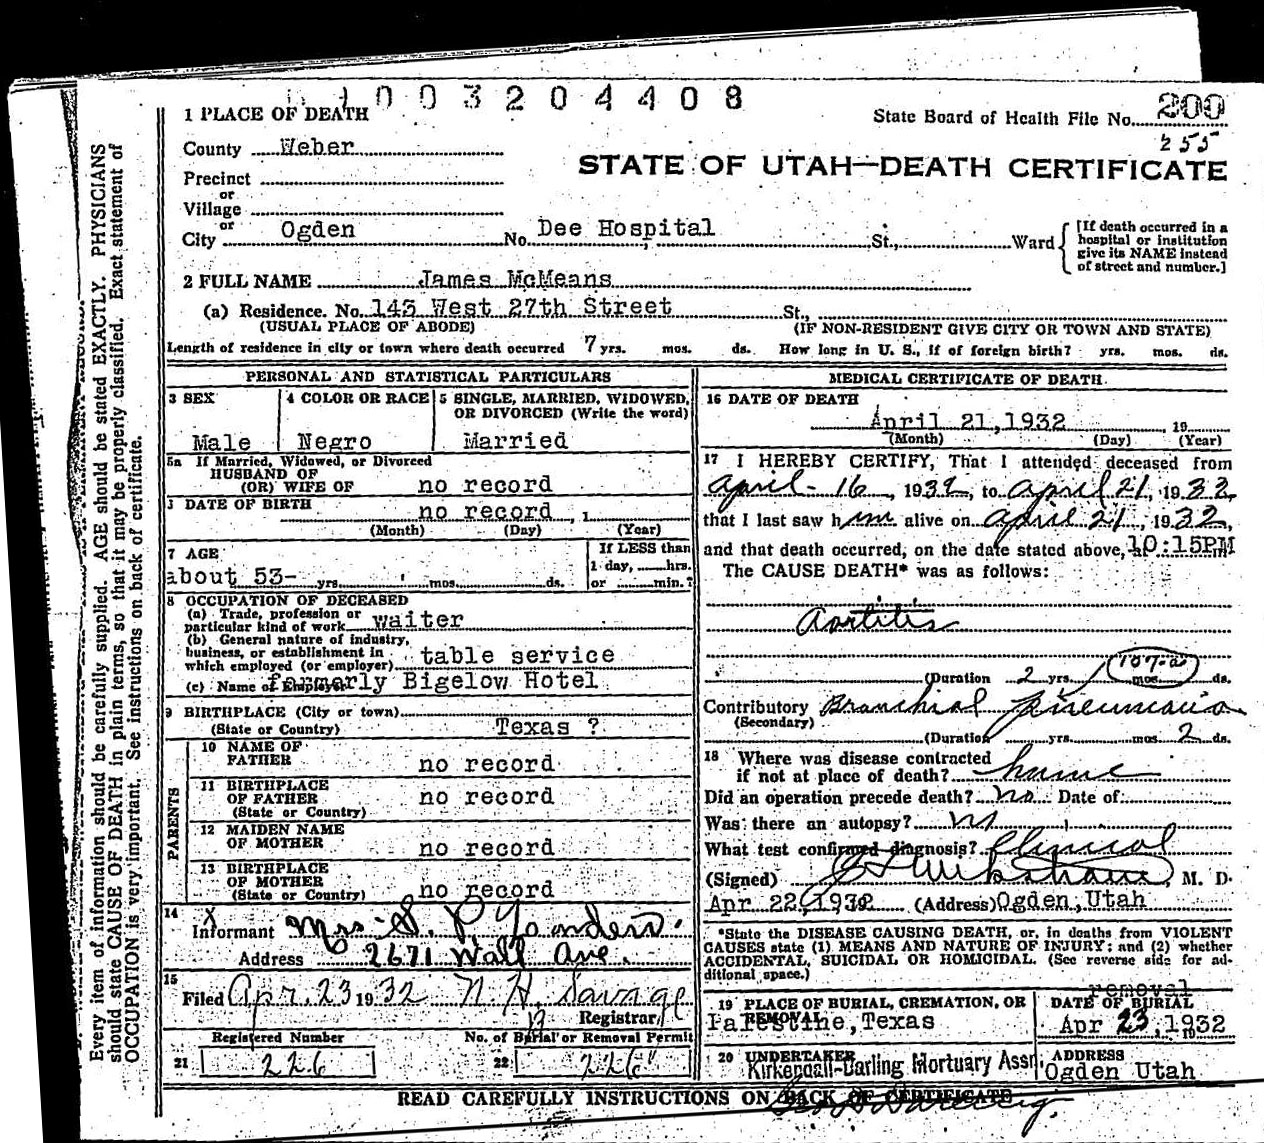 1003204408
1 PLACE OF DEATH
State Board of Health File No. 200
255
County Weber
STATE OF UTAH—DEATH CERTIFICATE
Precinct
or
Village
or
City Ogden No. Dee Hospital St., Ward
[If death occurred in a
hospital or institution
give its NAME instead
of street and number.]
2 FULL NAME James McMeans
(a) Residence. No. 143 West 27th Street St.,
(USUAL PLACE OF ABODE) (IF NON-RESIDENT GIVE CITY OR TOWN AND STATE)
Length of residence in city or town where death occurred 7 yrs. mos. ds. How long in U. S., if of foreign birth? yrs. mos. ds.
PERSONAL AND STATISTICAL PARTICULARS
3 SEX 4 COLOR OR RACE 5 SINGLE, MARRIED, WIDOWED,
OR DIVORCED (Write the word)
Male Negro Married
5a If Married, Widowed, or Divorced
HUSBAND OF
(OR) WIFE OF no record
DATE OF BIRTH no record , 1
(Month) (Day) (Year)
7 AGE If LESS than
1 day, hrs.
about 53- yrs. mos. ds. or min.?
8 OCCUPATION OF DECEASED
(a) Trade, profession or
particular kind of work waiter
(b) General nature of industry,
business, or establishment in
which employed (or employer) table service
(c) Name of Employer formerly Bigelow Hotel
9 BIRTHPLACE (City or town)
(State or Country) Texas ?
PARENTS
10 NAME OF
FATHER no record
11 BIRTHPLACE
OF FATHER no record
(State or Country)
12 MAIDEN NAME
OF MOTHER no record
13 BIRTHPLACE
OF MOTHER
(State or Country) no record
14 X
Informant Mrs. S. P.
Address 2671 Wall Ave.
15
Filed Apr. 23 1932 N. H. Savage
19 Registrar
Registered Number No. of Burial or Removal Permit
21 226 22 226
MEDICAL CERTIFICATE OF DEATH
16 DATE OF DEATH
April 21,1932 , 19
(Month) (Day) (Year)
17 I HEREBY CERTIFY, That I attended deceased from
April - 16, 1932, to April 21, 1932,
that I last saw him alive on April 21, 1932,
and that death occurred, on the date stated above, at 10:15PM
The CAUSE DEATH* was as follows:
Aortitis
(Duration 2 yrs. mos. ds.
Contributory Bronchial Pneumonia
(Secondary)
(Duration yrs. mos. 2 ds.
18 Where was disease contracted
if not at place of death? home
Did an operation precede death? no Date of:
Was there an autopsy? no
What test confirmed diagnosis? Clinical
(Signed) M. D.
Apr 22,1932 (Address) Ogden,Utah
*State the DISEASE CAUSING DEATH, or, in deaths from VIOLENT
CAUSES state (1) MEANS AND NATURE OF INJURY; and (2) whether
ACCIDENTAL, SUICIDAL OR HOMICIDAL. (See reverse side for ad-
ditional space.)
19 PLACE OF BURIAL, CREMATION, OR
REMOVAL
Palestine,Texas
removal
DATE OF BURIAL
Apr 23,1932
20 UNDERTAKER
Kirkendall-Darling Mortuary Assn
ADDRESS
Ogden Utah
READ CAREFULLY INSTRUCTIONS ON BACK OF CERTIFICATE
Every item of information should be carefully supplied. AGE should be stated EXACTLY. PHYSICIANS
should state CAUSE OF DEATH in plain terms, so that it may be properly classified. Exact statement of
OCCUPATION is very important. See instructions on back of certificate.